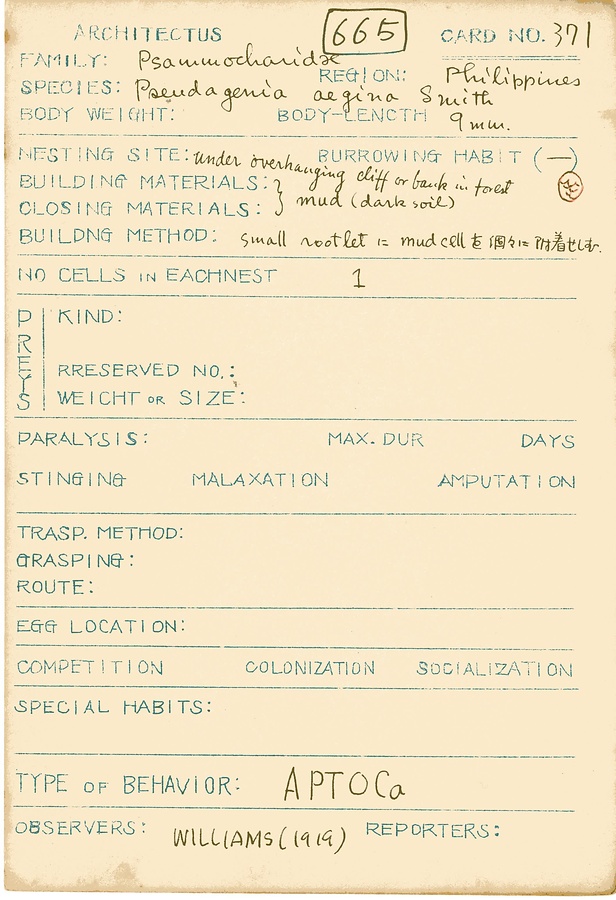 ARCHITECTUS 665 CARD NO. 371
FAMILY: Psammocharidae
REGION: Philippines
SPECIES: Pseudagenia aegina Smith
BODY WEIGHT: BODY-LENGTH 9 mm.
NESTING SITE: under overhanging cliff or bank in forest BURROWING HABIT (—)
BUILDING MATERIALS: }
CLOSING MATERIALS: } mud (dark soil)
BUILDNG METHOD: small rootlet ニ mud cell を 個々ニ 附着せしむ.
NO CELLS IN EACHNEST 1
PREYS
KIND:
RRESERVED NO.:
WEICHT OR SIZE:
PARALYSIS: MAX. DUR DAYS
STINGING MALAXATION AMPUTATION
TRASP. METHOD:
GRASPING:
ROUTE:
EGG LOCATION:
COMPETITION COLONIZATION SOCIALIZATION
SPECIAL HABITS:
TYPE OF BEHAVIOR: APTOCa
OBSERVERS: WILLIAMS (1919) REPORTERS: